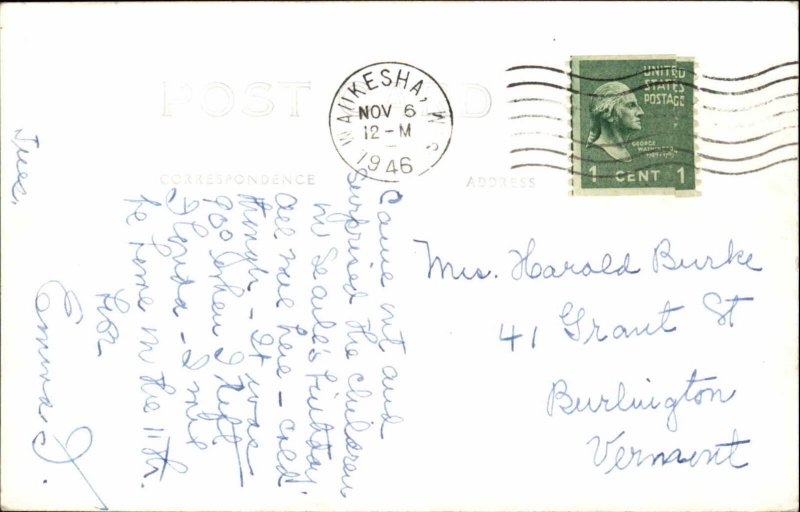 POST CARD
CORRESPONDENCE
ADDRESS
WAUKESHA, WIS.
NOV 6
12-M
1946
UNITED
STATES
POSTAGE
GEORGE
WASHINGTON
1789-1797
1 CENT 1
Tues.
Came out and
surprised the children
on Searle's birthday.
all well here - cold
though - It was
90° when I left
Florida - I will
be home on the 11th.
Love
Emma J.
Mrs. Harold Burke
41 Grant St
Burlington
Vermont